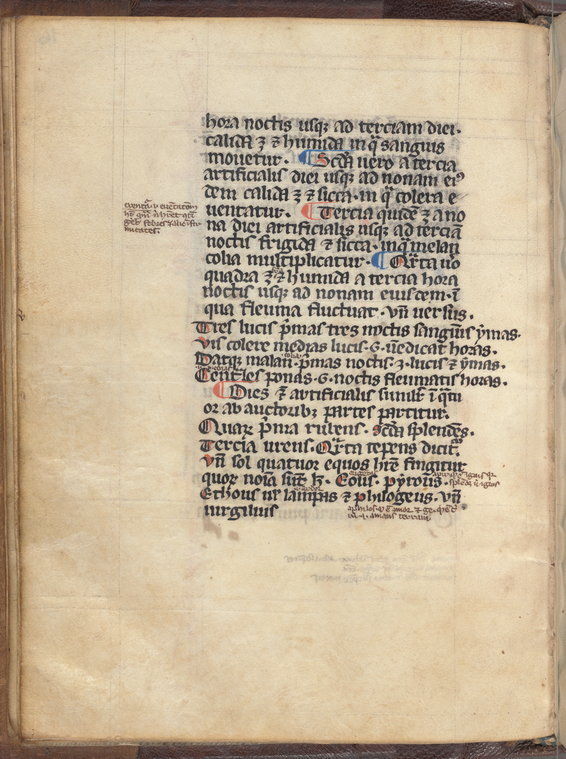 hora noctis usqꝫ ad terciam diei.
calida ꝫ ⁊ humida in q̄ sanguis
mouetur. ¶ Scd̄a uero a tercia
artificialis diei usqꝫ ad nonam eiꝰ
dem calida ꝫ ⁊ sicca. in q̄ colera e
uentatur. ¶ Tercia quidē ꝫ a no
na diei artificialis usqꝫ ad terciā
noctis frigida ⁊ sicca. in q̄ melan
colia multiplicatur. ¶ Qᷓrta uͦo
quadra ꝫ ⁊ humida a tercia hora
noctis usqꝫ ad nonam eiusdem. ī
qua fleuma fluctuat. vn̄ uersus.
Tres lucis p̄mas tres noctis sanguis ẏmas.
Vis colere medias lucis .6. uēdicat horas.
Datqꝫ melan̄ p̄mas noctis .3. lucis ⁊ ẏmas.
Cent͛les ponas .6. noctis fleumatis horas.
¶ Dies ⁊ artificialis simil͛r ī q̄tu
or ab auctoribꝫ partes partitur.
Quar̄ p̄ma rubens. scd̄a splendēs.
Tercia urens. Qᷓrta tepens dicit᷑.
vn̄ sol quatuor equos hr̄e fingitur
quor̄ noīa sūt h̄. Eous. pẏrous.
Ethous ul̓ lampas ⁊ philogeus. vn̄
uirgilius